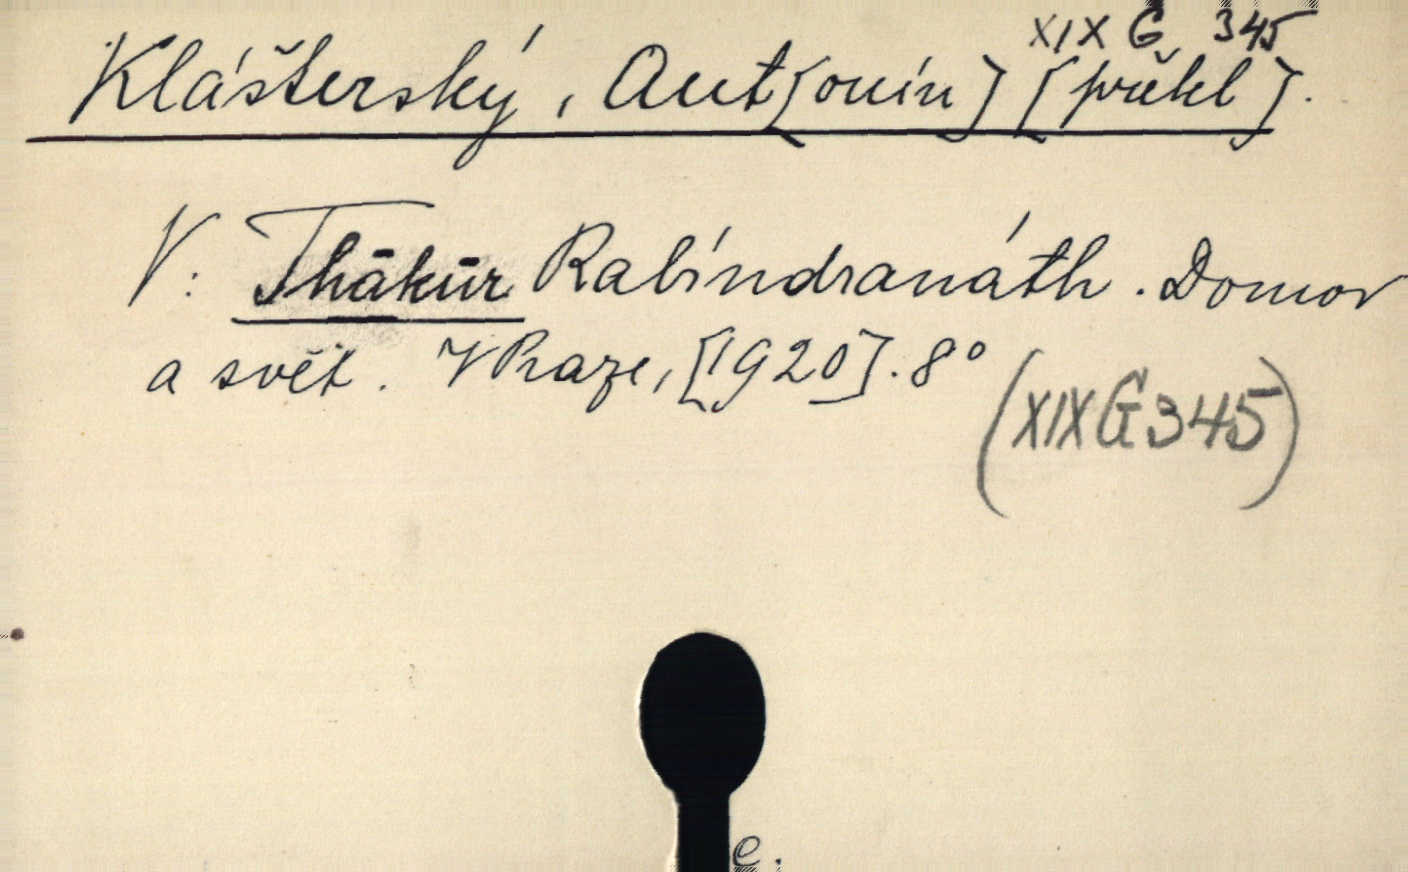 XIX G 345
Klášterský, Ant[onín] [překl].
V: Thākūr Rabíndranáth. Domov
a svět. V Praze, [1920]. 8°
(XIX G 345)
e.